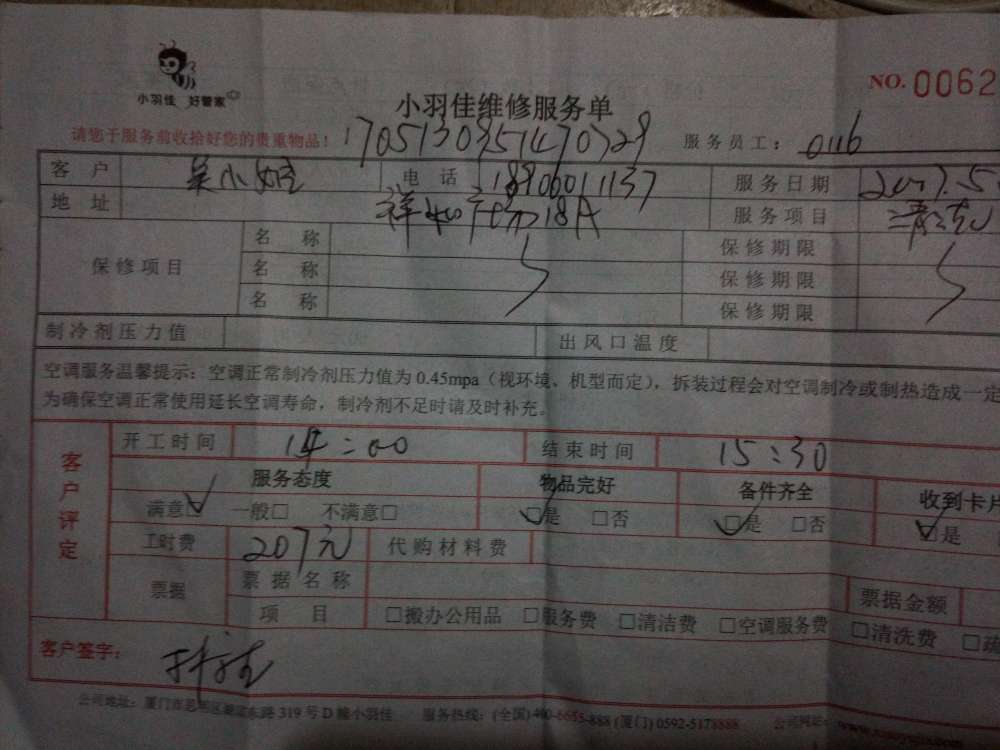 小羽佳 好管家
NO. 0062
小羽佳维修服务单
请您于服务前收拾好您的贵重物品！ 服务员工： 0116
客户 吴小姐 电话 18906011137 服务日期
地址 18A 服务项目 清洗
保修项目 名称 保修期限
名称 保修期限
名称 保修期限
制冷剂压力值 出风口温度
空调服务温馨提示：空调正常制冷剂压力值为0.45mpa（视环境、机型而定），拆装过程会对空调制冷或制热造成一定
为确保空调正常使用延长空调寿命，制冷剂不足时请及时补充。
客户评定
开工时间 14:00 结束时间 15:30
服务态度 物品完好 备件齐全 收到卡片
满意□ 一般□ 不满意□ □是 □否 □是 □否 □是
工时费 207元 代购材料费
票据 票据名称 票据金额
项目 □搬办公用品 □服务费 □清洁费 □空调服务费 □清洗费 □疏
客户签字：
公司地址：厦门市思明区 东路319号D幢小羽佳 服务热线：(全国)400-6655-888 (厦门) 0592-5178888 公司网址：